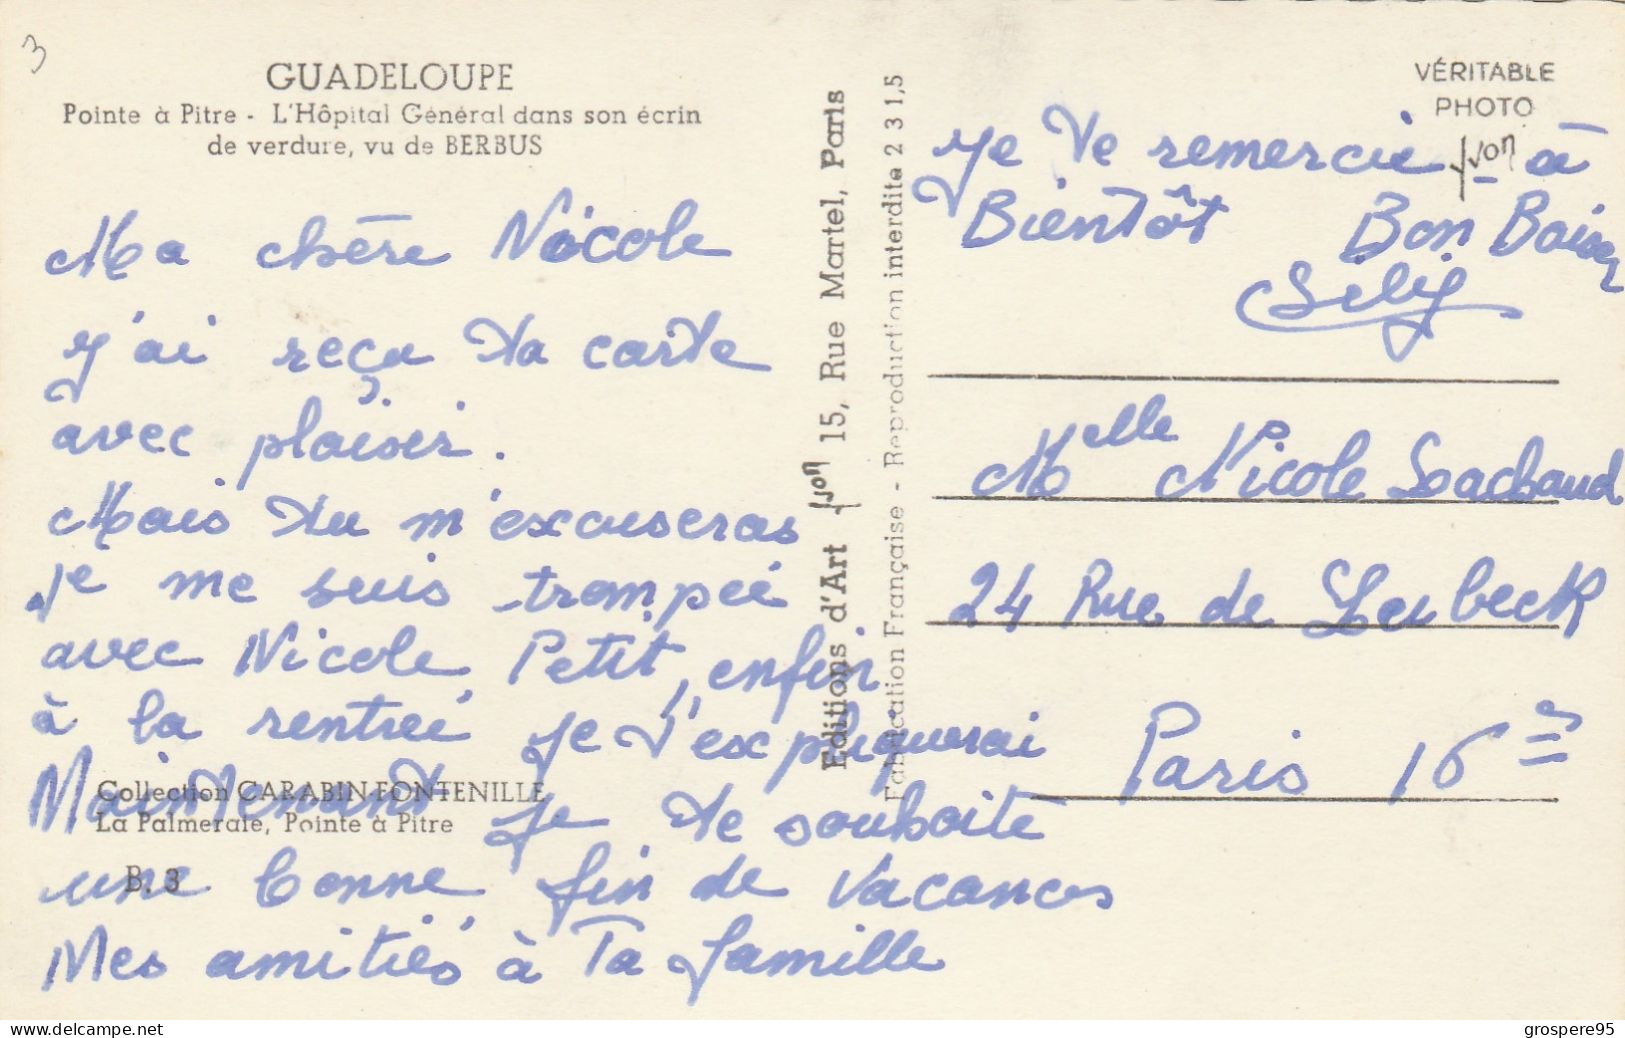 3
GUADELOUPE
Pointe à Pitre - L'Hôpital Général dans son écrin
de verdure, vu de BERBUS
Ma chère Nicole
j'ai reçu ta carte
avec plaisir.
Mais tu m'excuseras
je me suis trompée
avec Nicole Petit, enfin
à la rentrée je t'expliquerai
Maintenant je te souhaite
une bonne fin de vacances
Mes amitiés à Ta famille
Collection CARABIN-FONTENILLE
La Palmeraie, Pointe à Pitre
B. 3
Editions d'Art Yvon 15, Rue Martel, Paris
Fabrication Française - Reproduction interdite 2 3 1,5
VÉRITABLE
PHOTO
Yvon
Je Te remercie à
Bientôt Bon Baiser
Melle Nicole Lachaud
24 Rue de Lubeck
Paris 16e
delcampe.net
grospere95